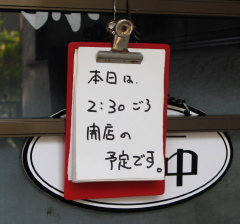 本日は、
2:30ごろ
開店の
予定です。
中